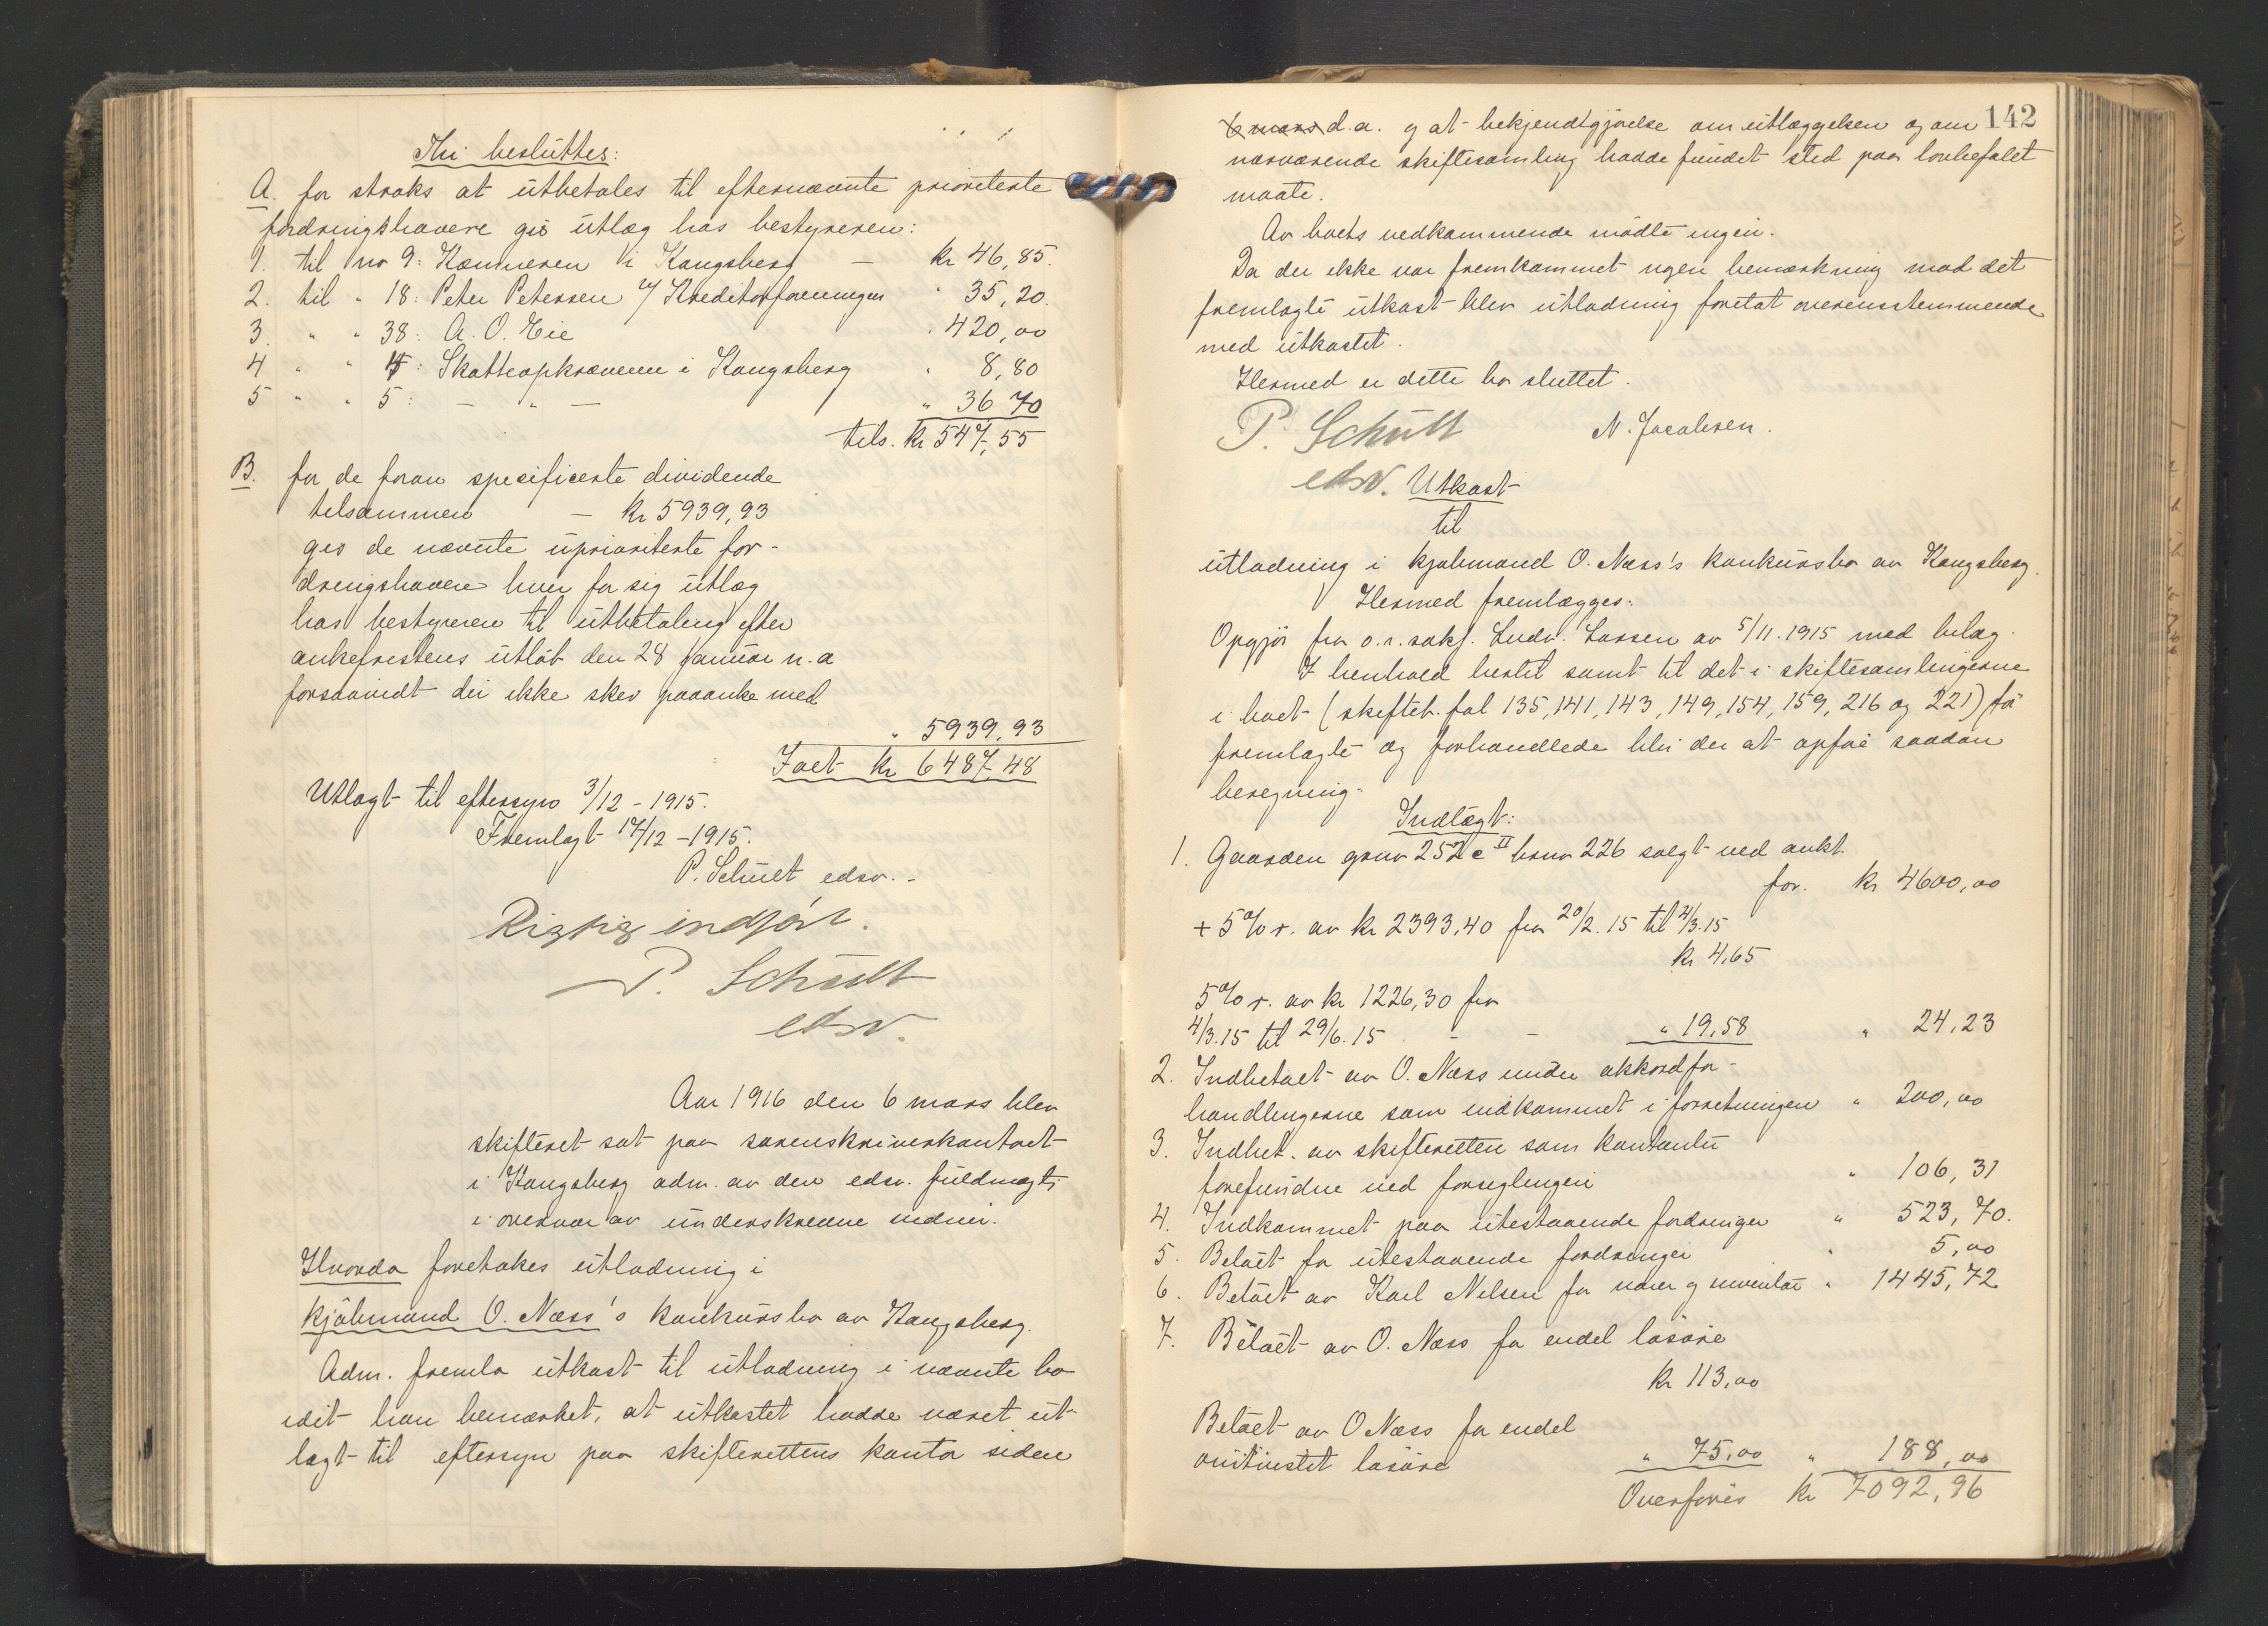 Thi besluttes:
A. for straks at utbetales til efternævnte prioriterte
fordringshavere gis utlæg hos bestyreren:
1. til no 9: Kæmneren i Kongsberg — kr 46,85.
2. til " 18: Peter Petersen v/ Kreditorforeningen " 35,20.
3. " " 38: A. O. Eie " 420,00
4 " " 4: Skatteopkræveren i Kongsberg " 8,80
5 " " 5: — " — " 36 70
tils. kr 547,55
B. for de foran specificerte dividende
tilsammen — kr 5939,93
gis de nævnte uprioriterte for-
dringshavere hver for sig utlæg
hos bestyreren til utbetaling efter
ankefristens utløb den 28 januar n. a
forsaavidt der ikke skes paaanke med
" 5939,93
Ialt kr 6487,48
Utlagt til eftersyn 3/12 - 1915.
Fremlagt 17/12 - 1915.
P. Schült edsv. -
Rigtig indført.
P. Schült
edsv.
Aar 1916 den 6 mars blev
skifteret sat paa sorenskriverkontoret
i Kongsberg adm. av den edsv. fuldmægt.
i overvær av underskrevne vidner.
Hvorda foretokes utlodning i
kjøbmand O. Næss's konkursbo av Kongsberg.
Adm. fremla utkast til utlodning i nævnte bo
idet han bemerket, at utkastet hadde været ut-
lagt til eftersyn paa skifterettens kontor siden
142
6 mars d. a. og at bekjendtgjørelse om utlæggelsen og om
nærværende skiftesamling hadde fundet sted paa lovbefalet
maate.
Av boets vedkommende mødte ingen.
Da der ikke var fremkommet nogen bemerkning mod det
fremlagte utkast blev utlodning foretat overensstemmende
med utkastet.
Hermed er dette bo sluttet.
P. Schült N. Jacobsen.
edsv. Utkast
til
utlodning i kjøbmand O. Næss's konkursbo av Kongsberg.
Hermed fremlægges:
Opgjør fra o.r.sakf. Ludv. Lassen av 5/11. 1915 med bilag.
I henhold hertil samt til det i skiftesamlingerne
i boet (skifteb. fol 135, 141, 143, 149, 154, 159, 216 og 221) før
fremlagte og forhandlede blir der at opføre saadan
beregning.
Indtægt:
1. Gaarden grno 252 c II brno 226 solgt ved aukt.
for. kr 4600,00
+ 5 % r. av kr 2393,40 fra 20/2. 15 til 4/3. 15
kr 4,65
5 % r. av kr 1226,30 fra
4/3. 15 til 29/6. 15 - - " 19,58 " 24,23
2. Indbetalt av O. Næss under akkordfor-
handlingerne som indkommet i forretningen " 200,00
3. Indbet. av skifteretten som kontanter
forefundne ved forseglingen " 106,31
4. Indkommet paa utestaaende fordringer " 523,70.
5. Betalt for utestaaende fordringer " 5,00
6. Betalt av Karl Nilsen for varer og inventar " 1445,72
7. Betalt av O. Næss for endel løsøre
kr 113,00
Betalt av O Næss for endel
løsøre " 75,00 " 188,00
Overføres kr 7092,96